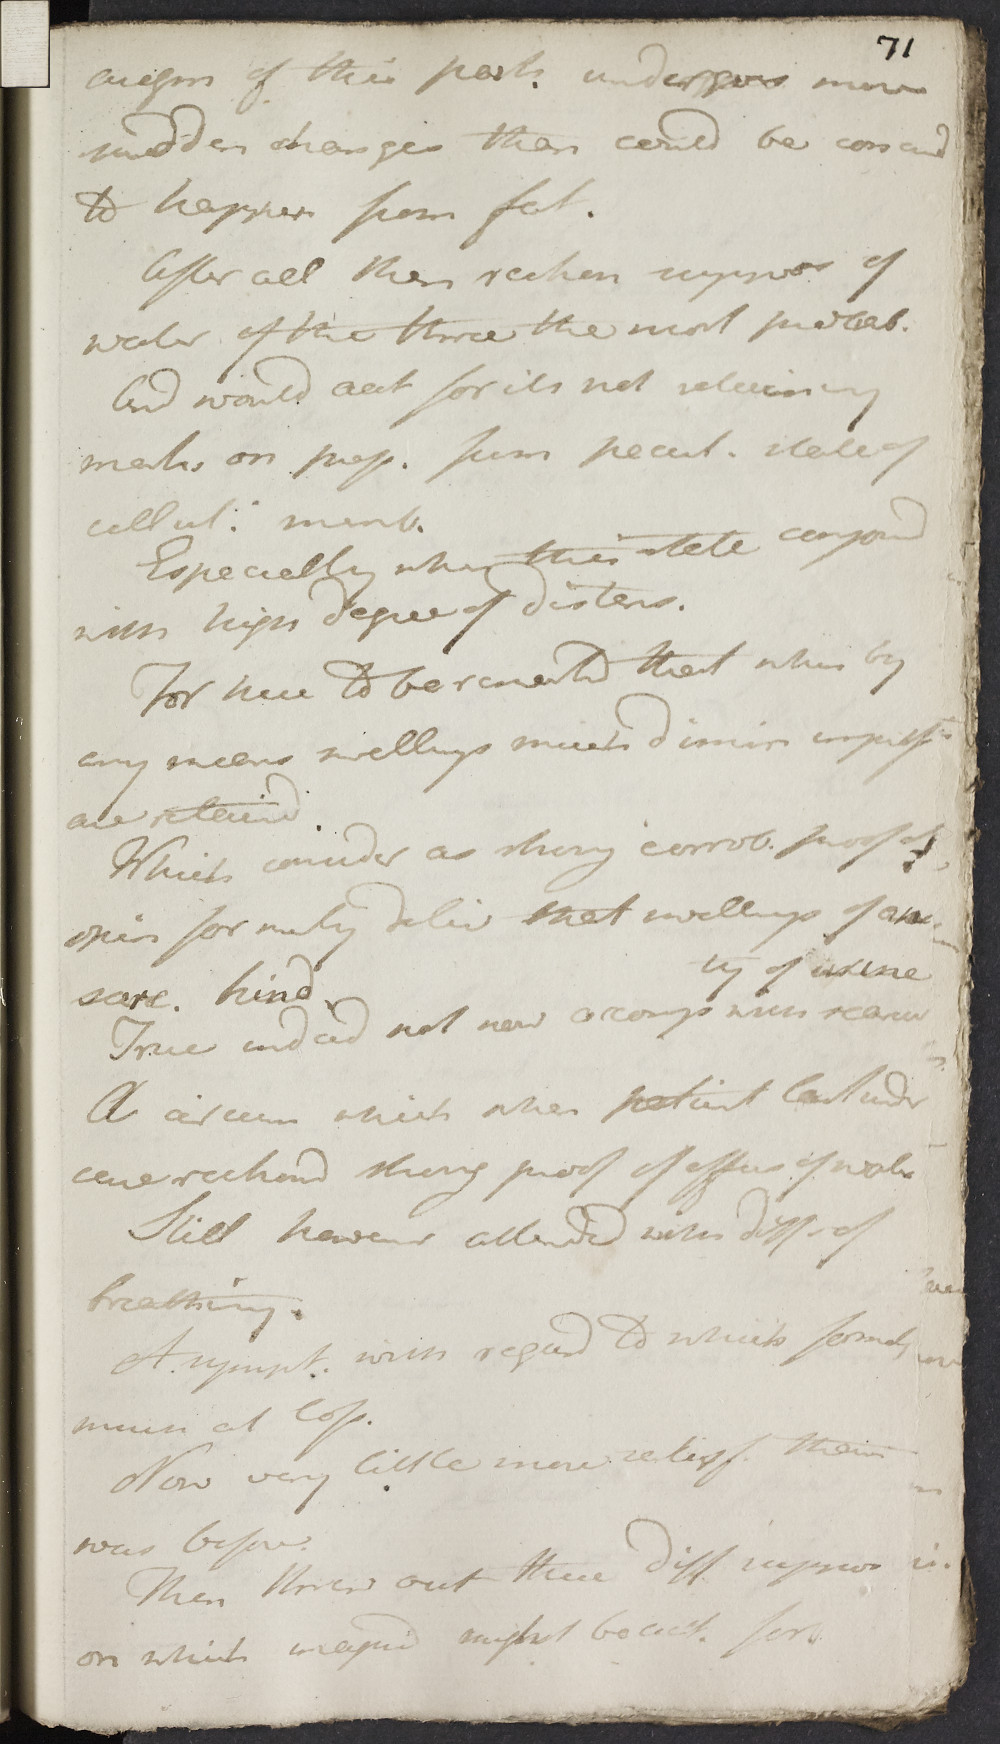 71
of this part. undergoes more
sudden changes than could be conceivd
to happen from fat.
After all then reckon suppos of
water of the three the most probab.
And would acct for its not retaining
marks on press. from peculi. state of
cellul: memb.
Especially when this state conjoind
with high degree of distens.
For here to be remarkd that when by
any means swellings much dimin impress
are retaind.
Which consider as strong corrob. proof of
opin formerly deliv that swellings of
sarc. kind.
ty of urine
True indeed not now accomp with scarci
A circum which when patient last under
care reckond strong proof of effus of water
Still however attended with diff. of
breathing.
A sympt. with regard to which formerly
much at loss.
Now very little more satisf. than
was before.
Then threw out three diff suppos
on which imagind might be acct. for.